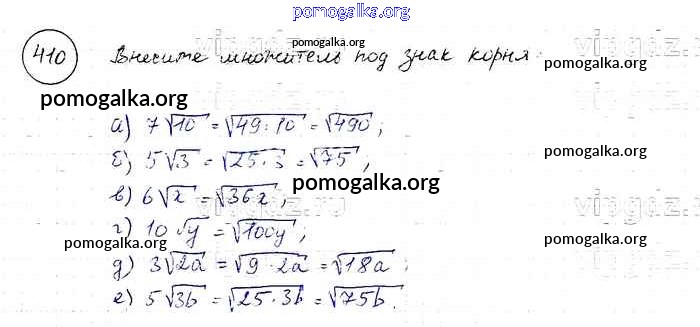 pomogalka.org
410 Внесите множитель под знак корня.
pomogalka.org
vipgdz.ru
pomogalka.org
pomogalka.org
а) 7√10 = √49·10 = √490;
б) 5√3 = √25·3 = √75;
pomogalka.org
в) 6√x = √36x;
pomogalka.org
vipgdz.ru
г) 10√y = √100y;
pomogalka.org
pomogalka.org
д) 3√2a = √9·2a = √18a;
е) 5√3b = √25·3b = √75b.
pomogalka.org
vipgdz